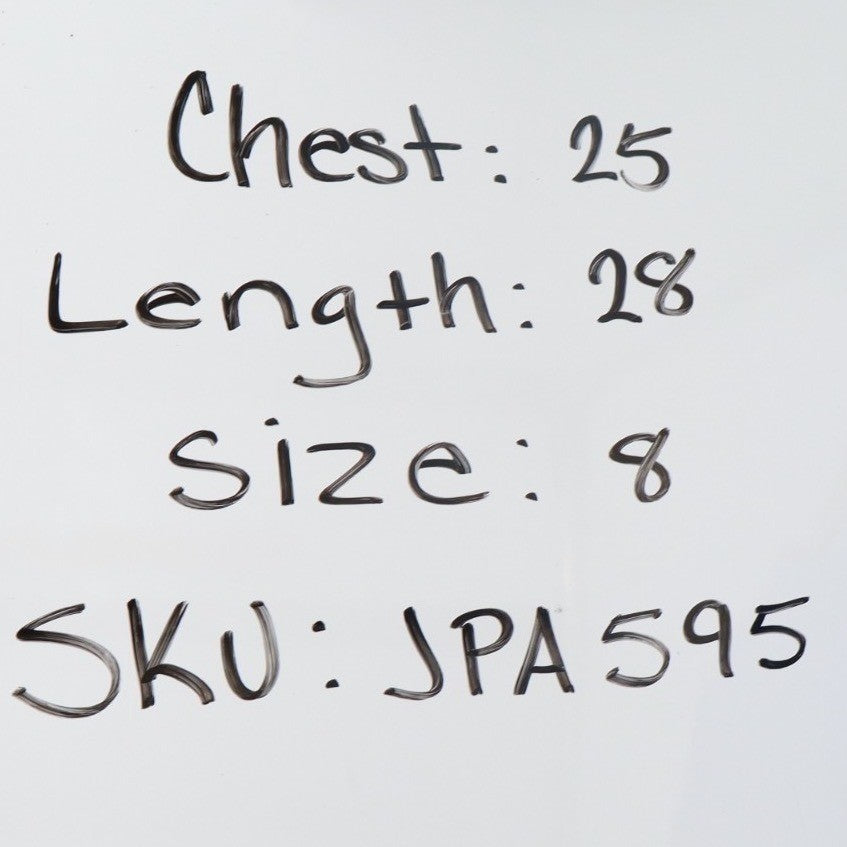 Chest: 25
Length: 28
Size: 8
SKU: JPA595